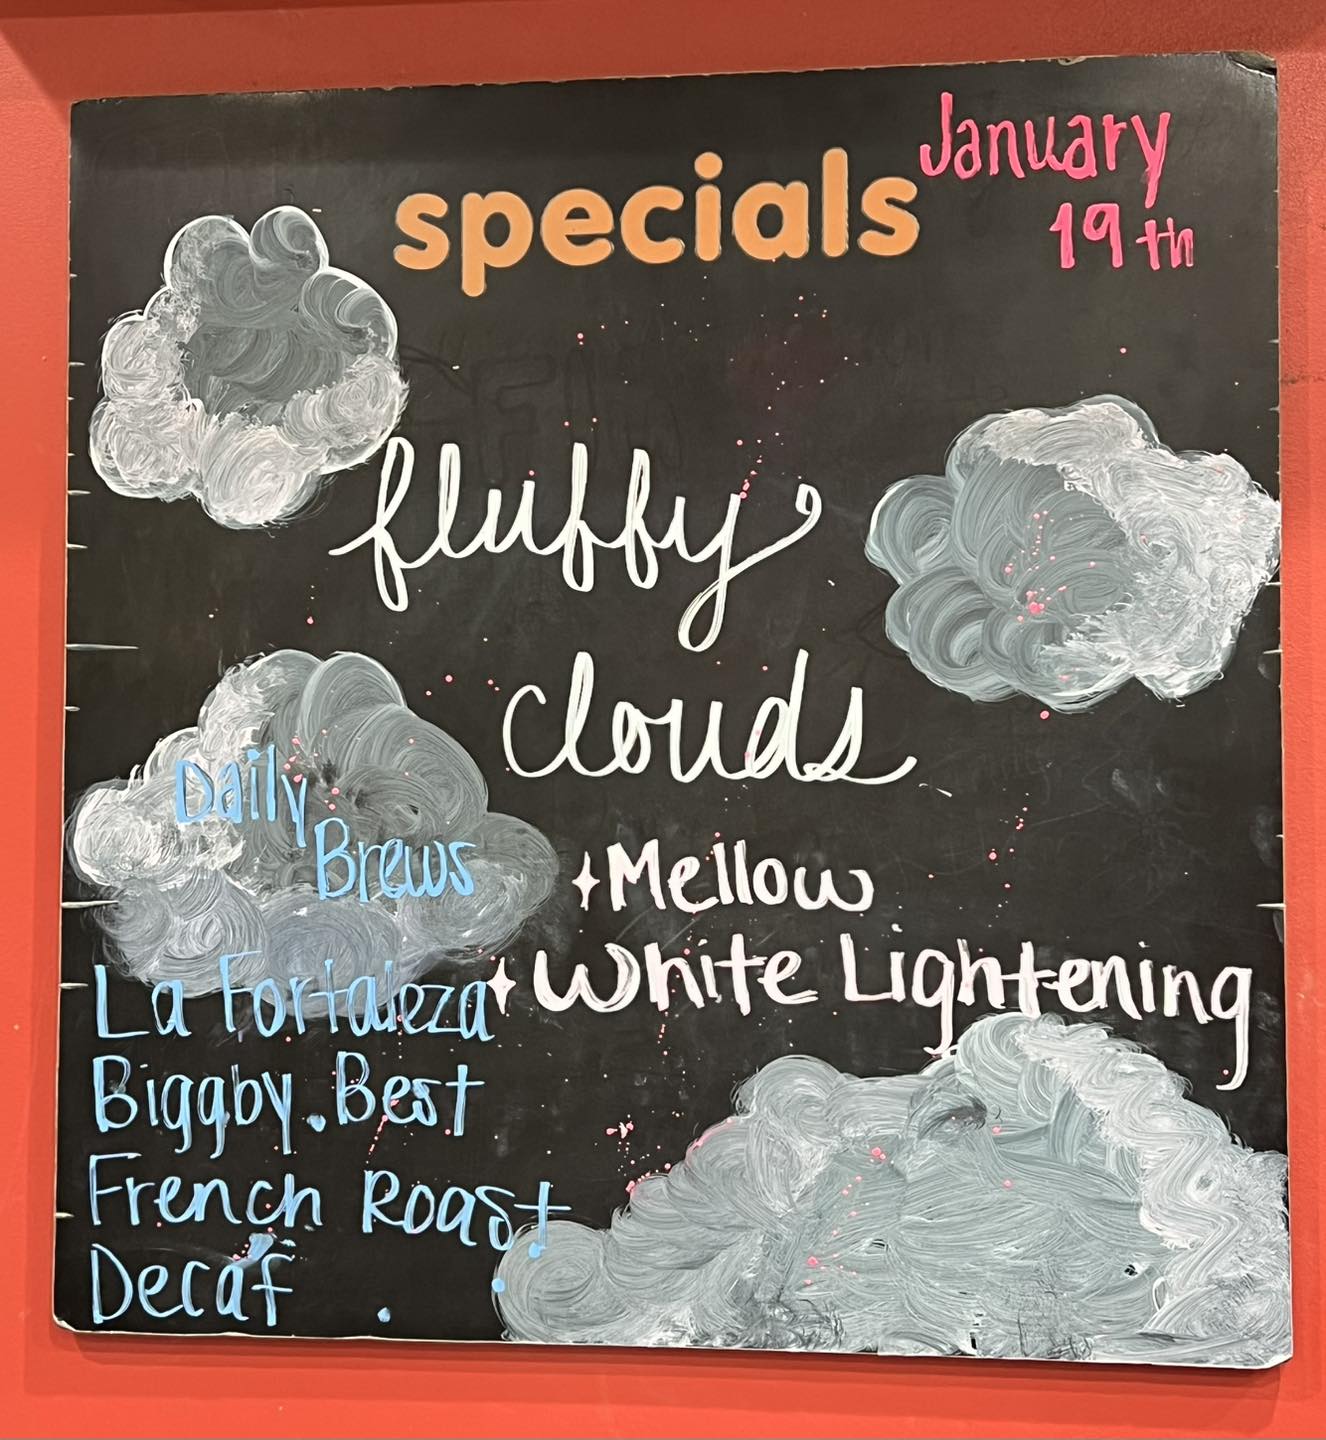 specials
January
19th
fluffy
clouds
Mellow
White Lightening
Daily
Brews
La Fortaleza
Biggby.Best
French Roast
Decaf